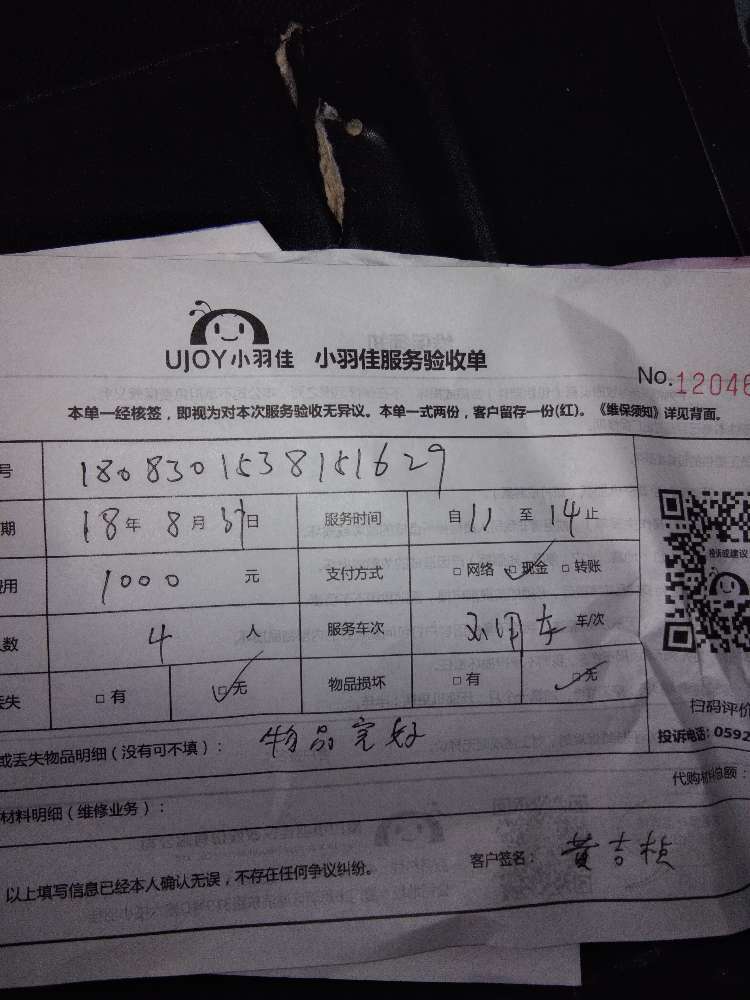 UJOY小羽佳 小羽佳服务验收单
No.12046
本单一经核签，即视为对本次服务验收无异议。本单一式两份，客户留存一份(红)。《维保须知》详见背面。
号 1808301538151629
期 18年 8月 31日 服务时间 自 11 至 14 止
费用 1000 元 支付方式 □网络 □现金 □转账
人数 4 人 服务车次 不用车 车/次
丢失 □有 □无 物品损坏 □有 □无
投诉或建议
扫码评价
投诉电话：0592
或丢失物品明细（没有可不填）： 物品完好
代购材料总额：
材料明细（维修业务）：
以上填写信息已经本人确认无误，不存在任何争议纠纷。 客户签名： 黄吉桢